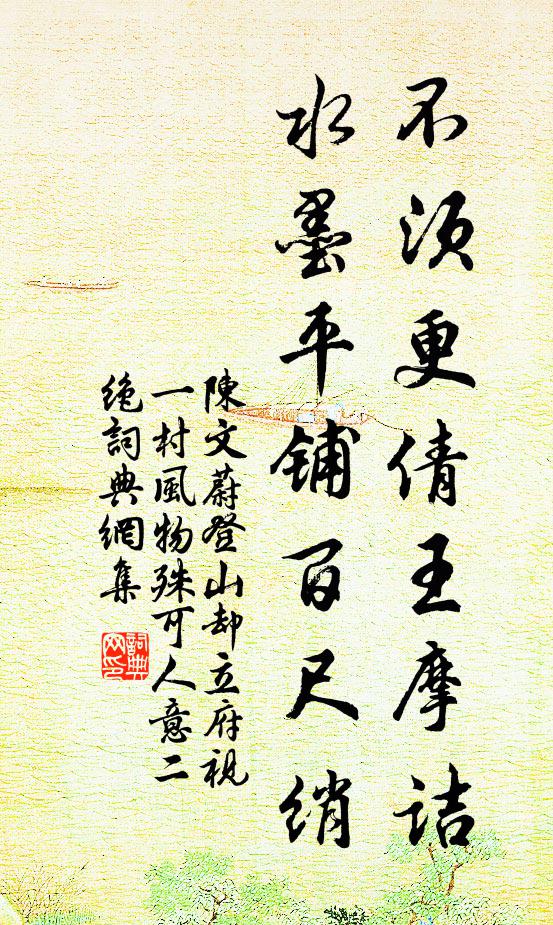 不須更倩王摩詰
水墨平鋪百尺綃
陳文蔚登山却立府視
一村風物殊可人意二
絶詞典網集
詞典
网印